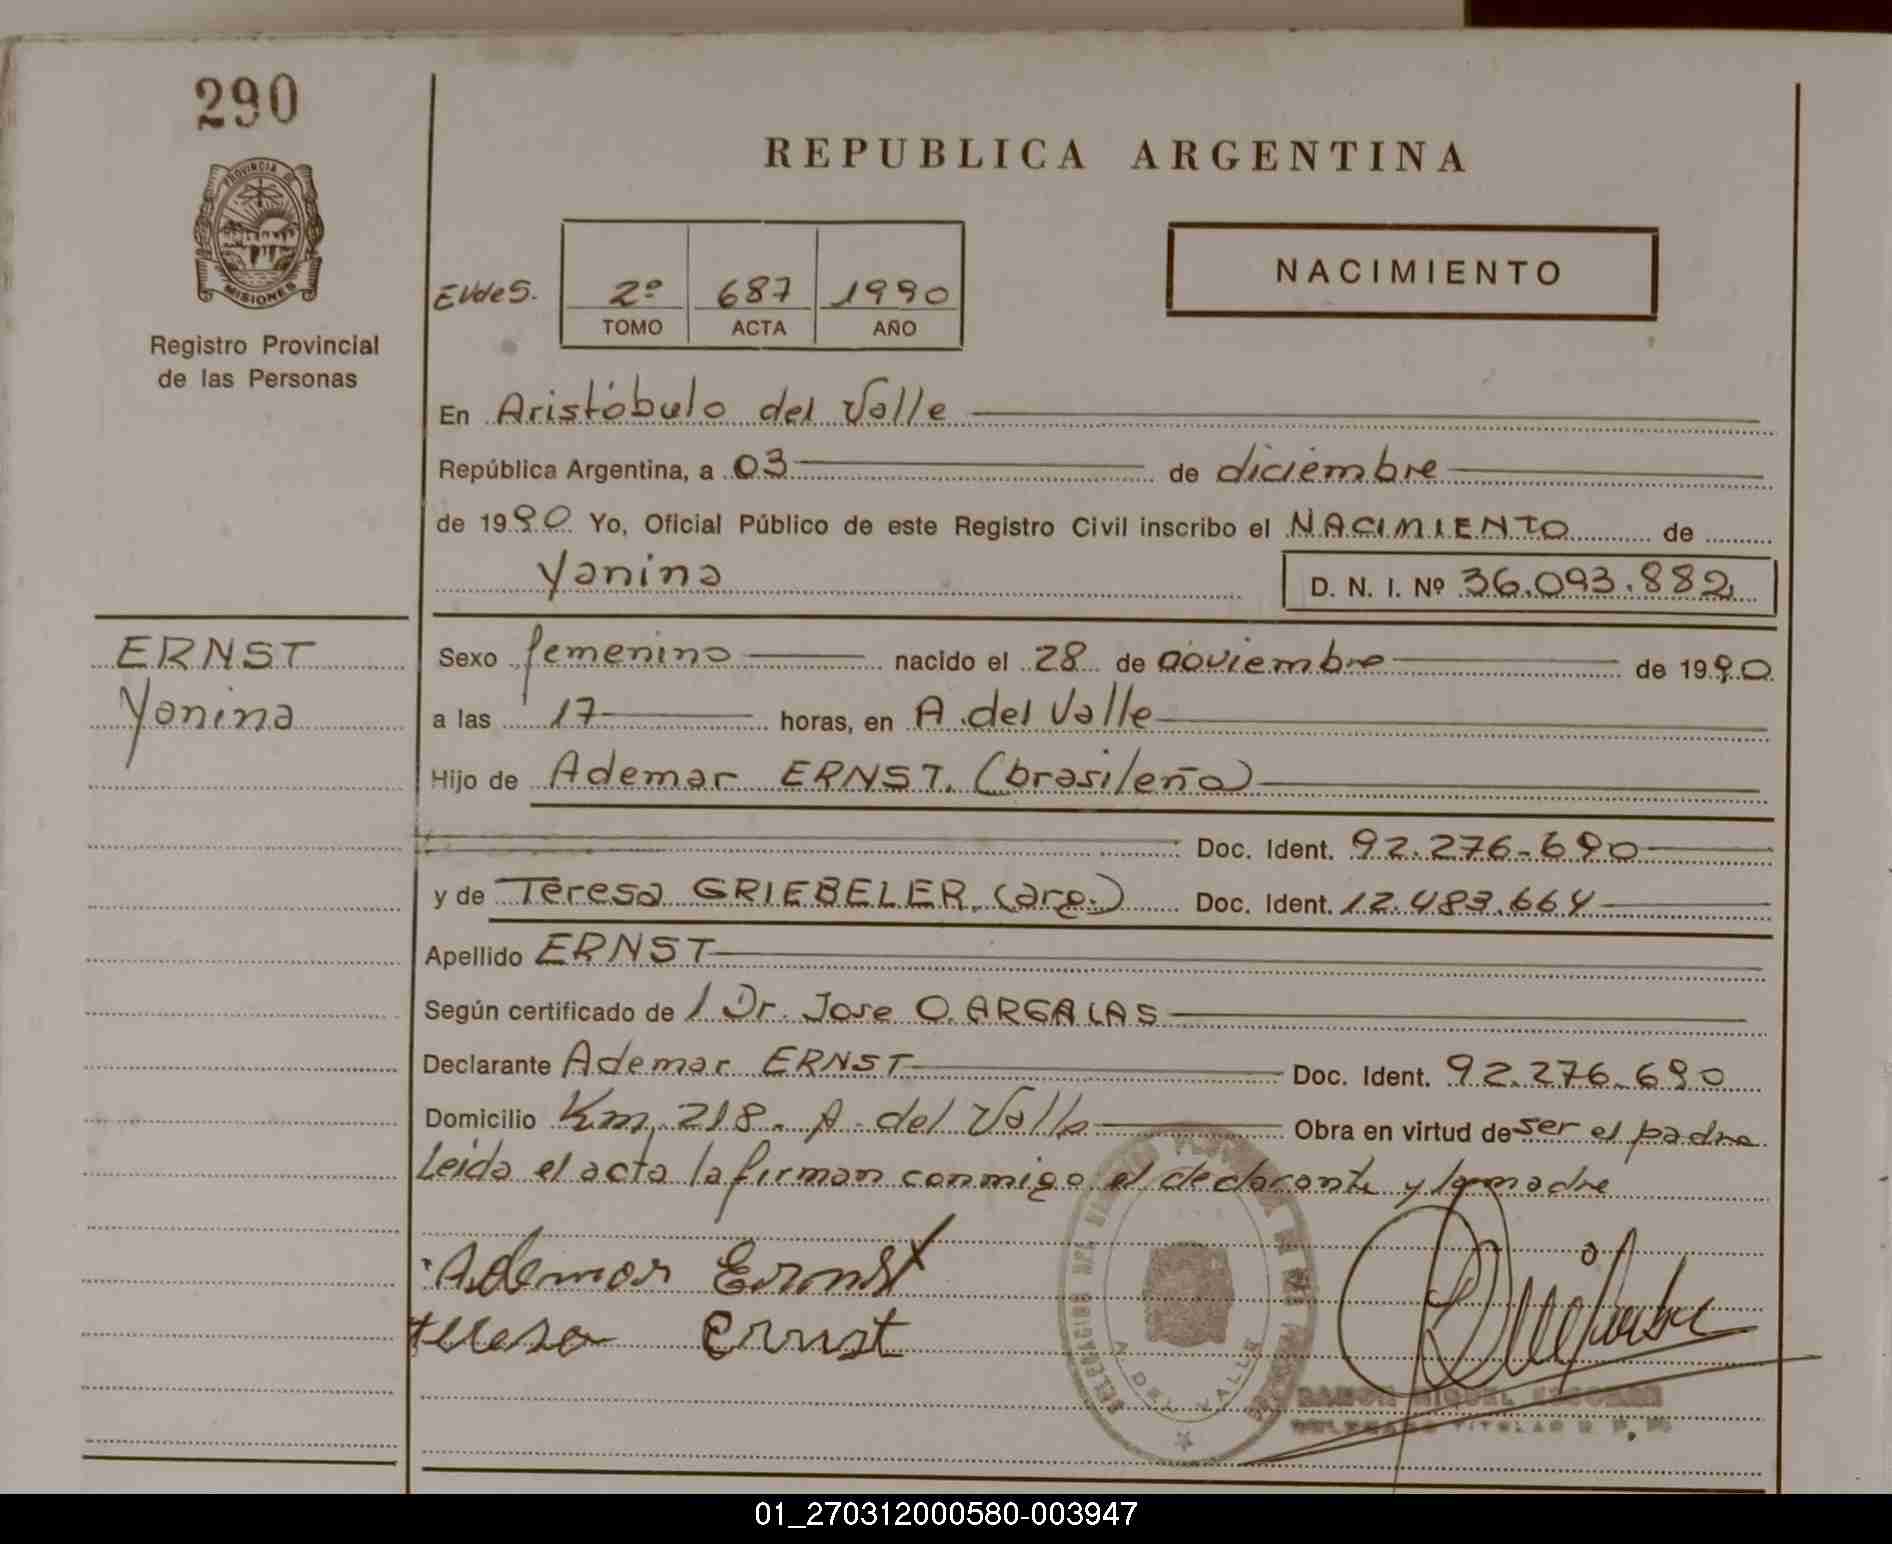 290
PROVINCIA DE
MISIONES
Registro Provincial
de las Personas
REPUBLICA ARGENTINA
2º 687 1990
TOMO ACTA AÑO
NACIMIENTO
En Aristóbulo del Valle
República Argentina, a 03 de diciembre
de 1990 Yo, Oficial Público de este Registro Civil inscribo el NACIMIENTO de
Yanina D. N. I. Nº 36.093.882
ERNST
Yanina
Sexo femenino nacido el 28 de noviembre de 1990
a las 17 horas, en A. del Valle
Hijo de Ademar ERNST. (brasileño)
Doc. Ident. 92.276.690
y de Teresa GRIEBELER. (arg.) Doc. Ident. 12.483.664
Apellido ERNST
Según certificado de 1 Dr. Jose O. ARGALAS
Declarante Ademar ERNST Doc. Ident. 92.276.690
Domicilio Km. 218. A. del Valle Obra en virtud de ser el padre
Leída el acta la firman conmigo el declarante y la madre
Ademar Ernst
Teresa Ernst
A. DEL VALLE
RAMON MIGUEL
01_270312000580-003947